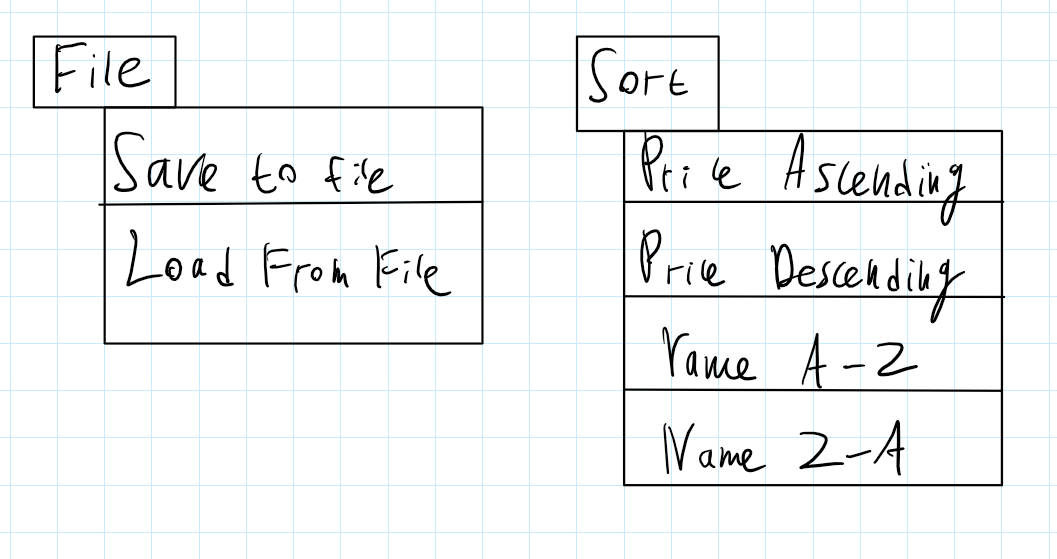 File
Save to file
Load From File
Sort
Price Ascending
Price Descending
Name A-Z
Name Z-A